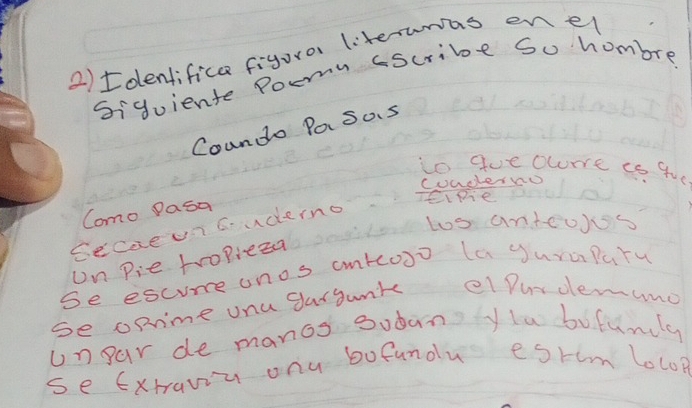 2) Idenlifica figuras literarias en el
Siguiente Poema escribe Su hombre.
Coando Pasas
Como Pasa
Se cae un Cuaderno
Un Pie tropieza
Se escurre unos anteojo
Se oprime una garganta
Un par de manos sudan
Se Extravia una bufanda
lo que ocurre es que
Cuaderno
El Pie
los anteojos
la
el Par de mano
y la bufanda
estam locos